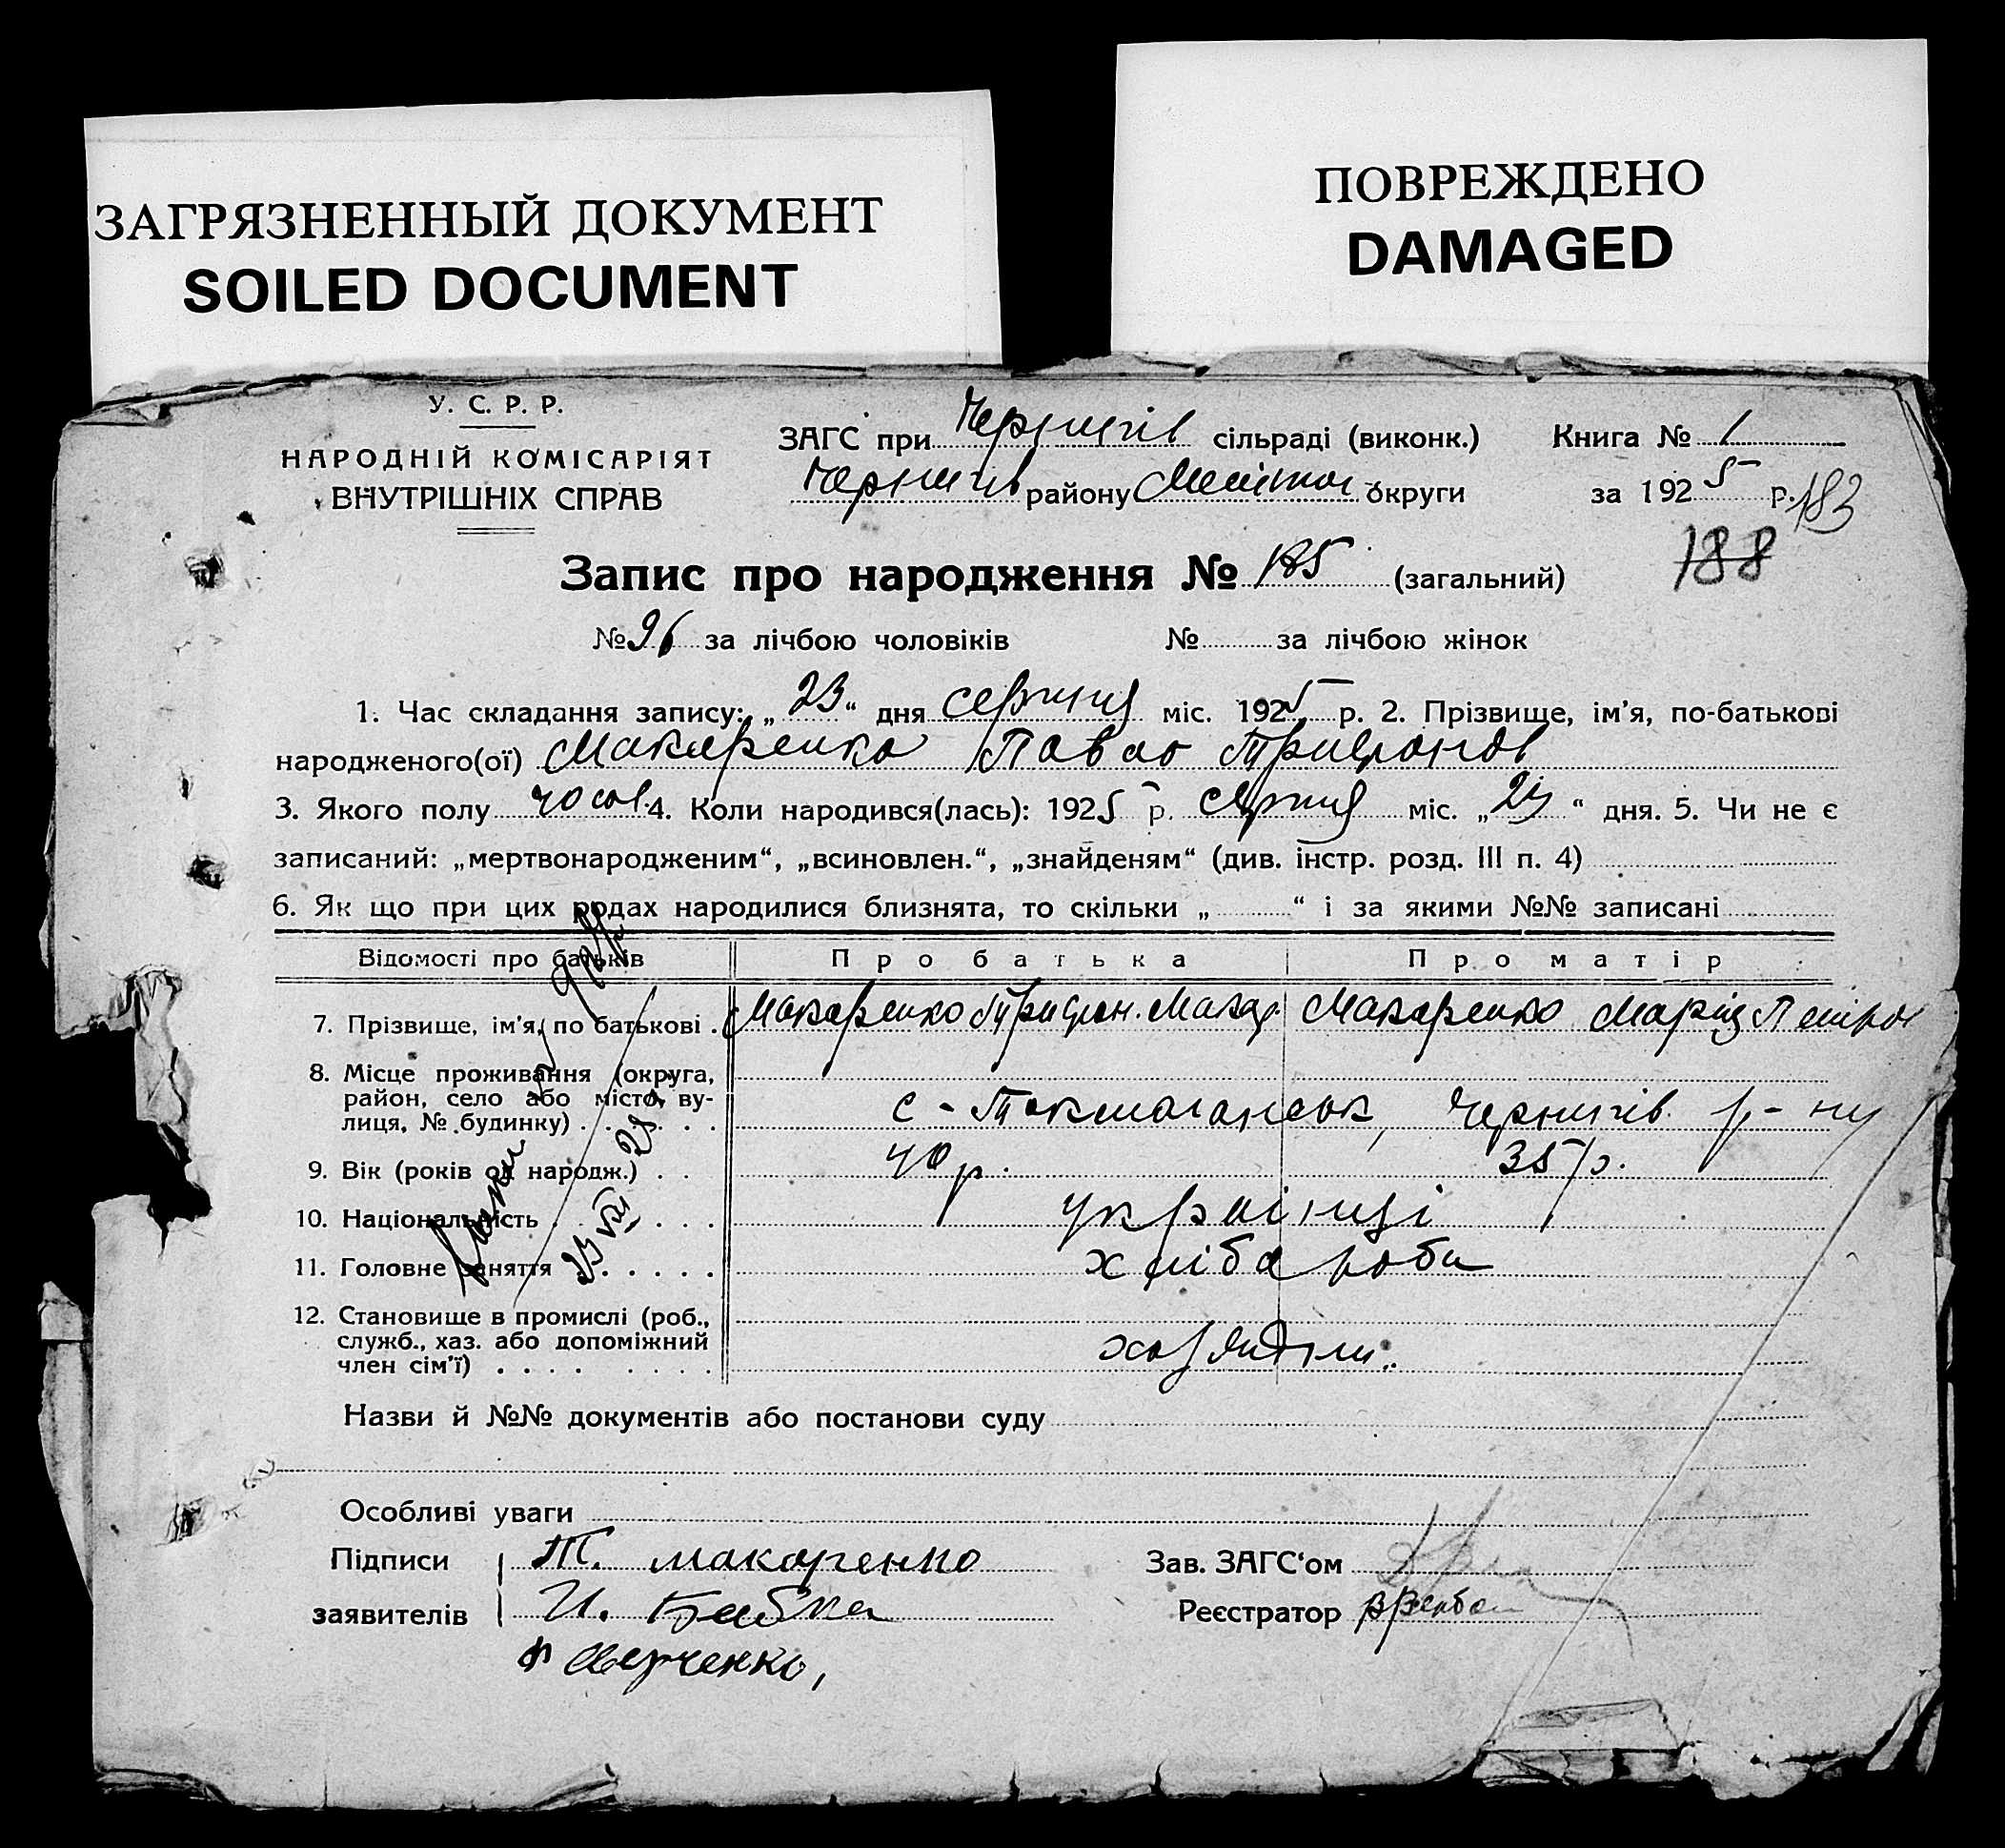 ЗАГРЯЗНЕННЫЙ ДОКУМЕНТ
SOILED DOCUMENT
ПОВРЕЖДЕНО
DAMAGED
У. С. Р. Р.
НАРОДНІЙ КОМІСАРІЯТ
ВНУТРІШНІХ СПРАВ
ЗАГС при Чернигів сільраді (виконк.)
Чернигів району Меліт округи
Книга № 1
за 1925 р. 183
188
Запис про народження № 185 (загальний)
№ 96 за лічбою чоловіків № за лічбою жінок
1. Час складання запису: „23“ дня серпня міс. 1925 р. 2. Прізвище, ім'я, по-батькові
народженого(ої) Макаренко Павло Трифонов
3. Якого полу чолов. 4. Коли народився(лась): 1925 р. серпня міс. „ “ дня. 5. Чи не є
записаний: „мертвонародженим“, „всиновлен.“, „знайденям“ (див. інстр. розд. III п. 4)
6. Як що при цих родах народилися близнята, то скільки „ “ і за якими №№ записані
Відомості про батьків Про батька Про матір
7. Прізвище, ім'я, по батькові . Макаренко Трифон. Макаренко Марія
8. Місце проживання (округа,
район, село або місто, ву-
лиця, № будинку) . . . . . . с - Чернигів. р-ну
9. Вік (років од народж.) . . 40 р. 35 р.
10. Національність . . . . . . українці
11. Головне заняття . . . . . . хліборобы
12. Становище в промислі (роб.,
служб., хаз. або допоміжний
член сім'ї) . . . . . . . .
Назви й №№ документів або постанови суду
Особливі уваги
Підписи Т. Макаренко
заявителів И.
Зав. ЗАГС'ом
Реєстратор